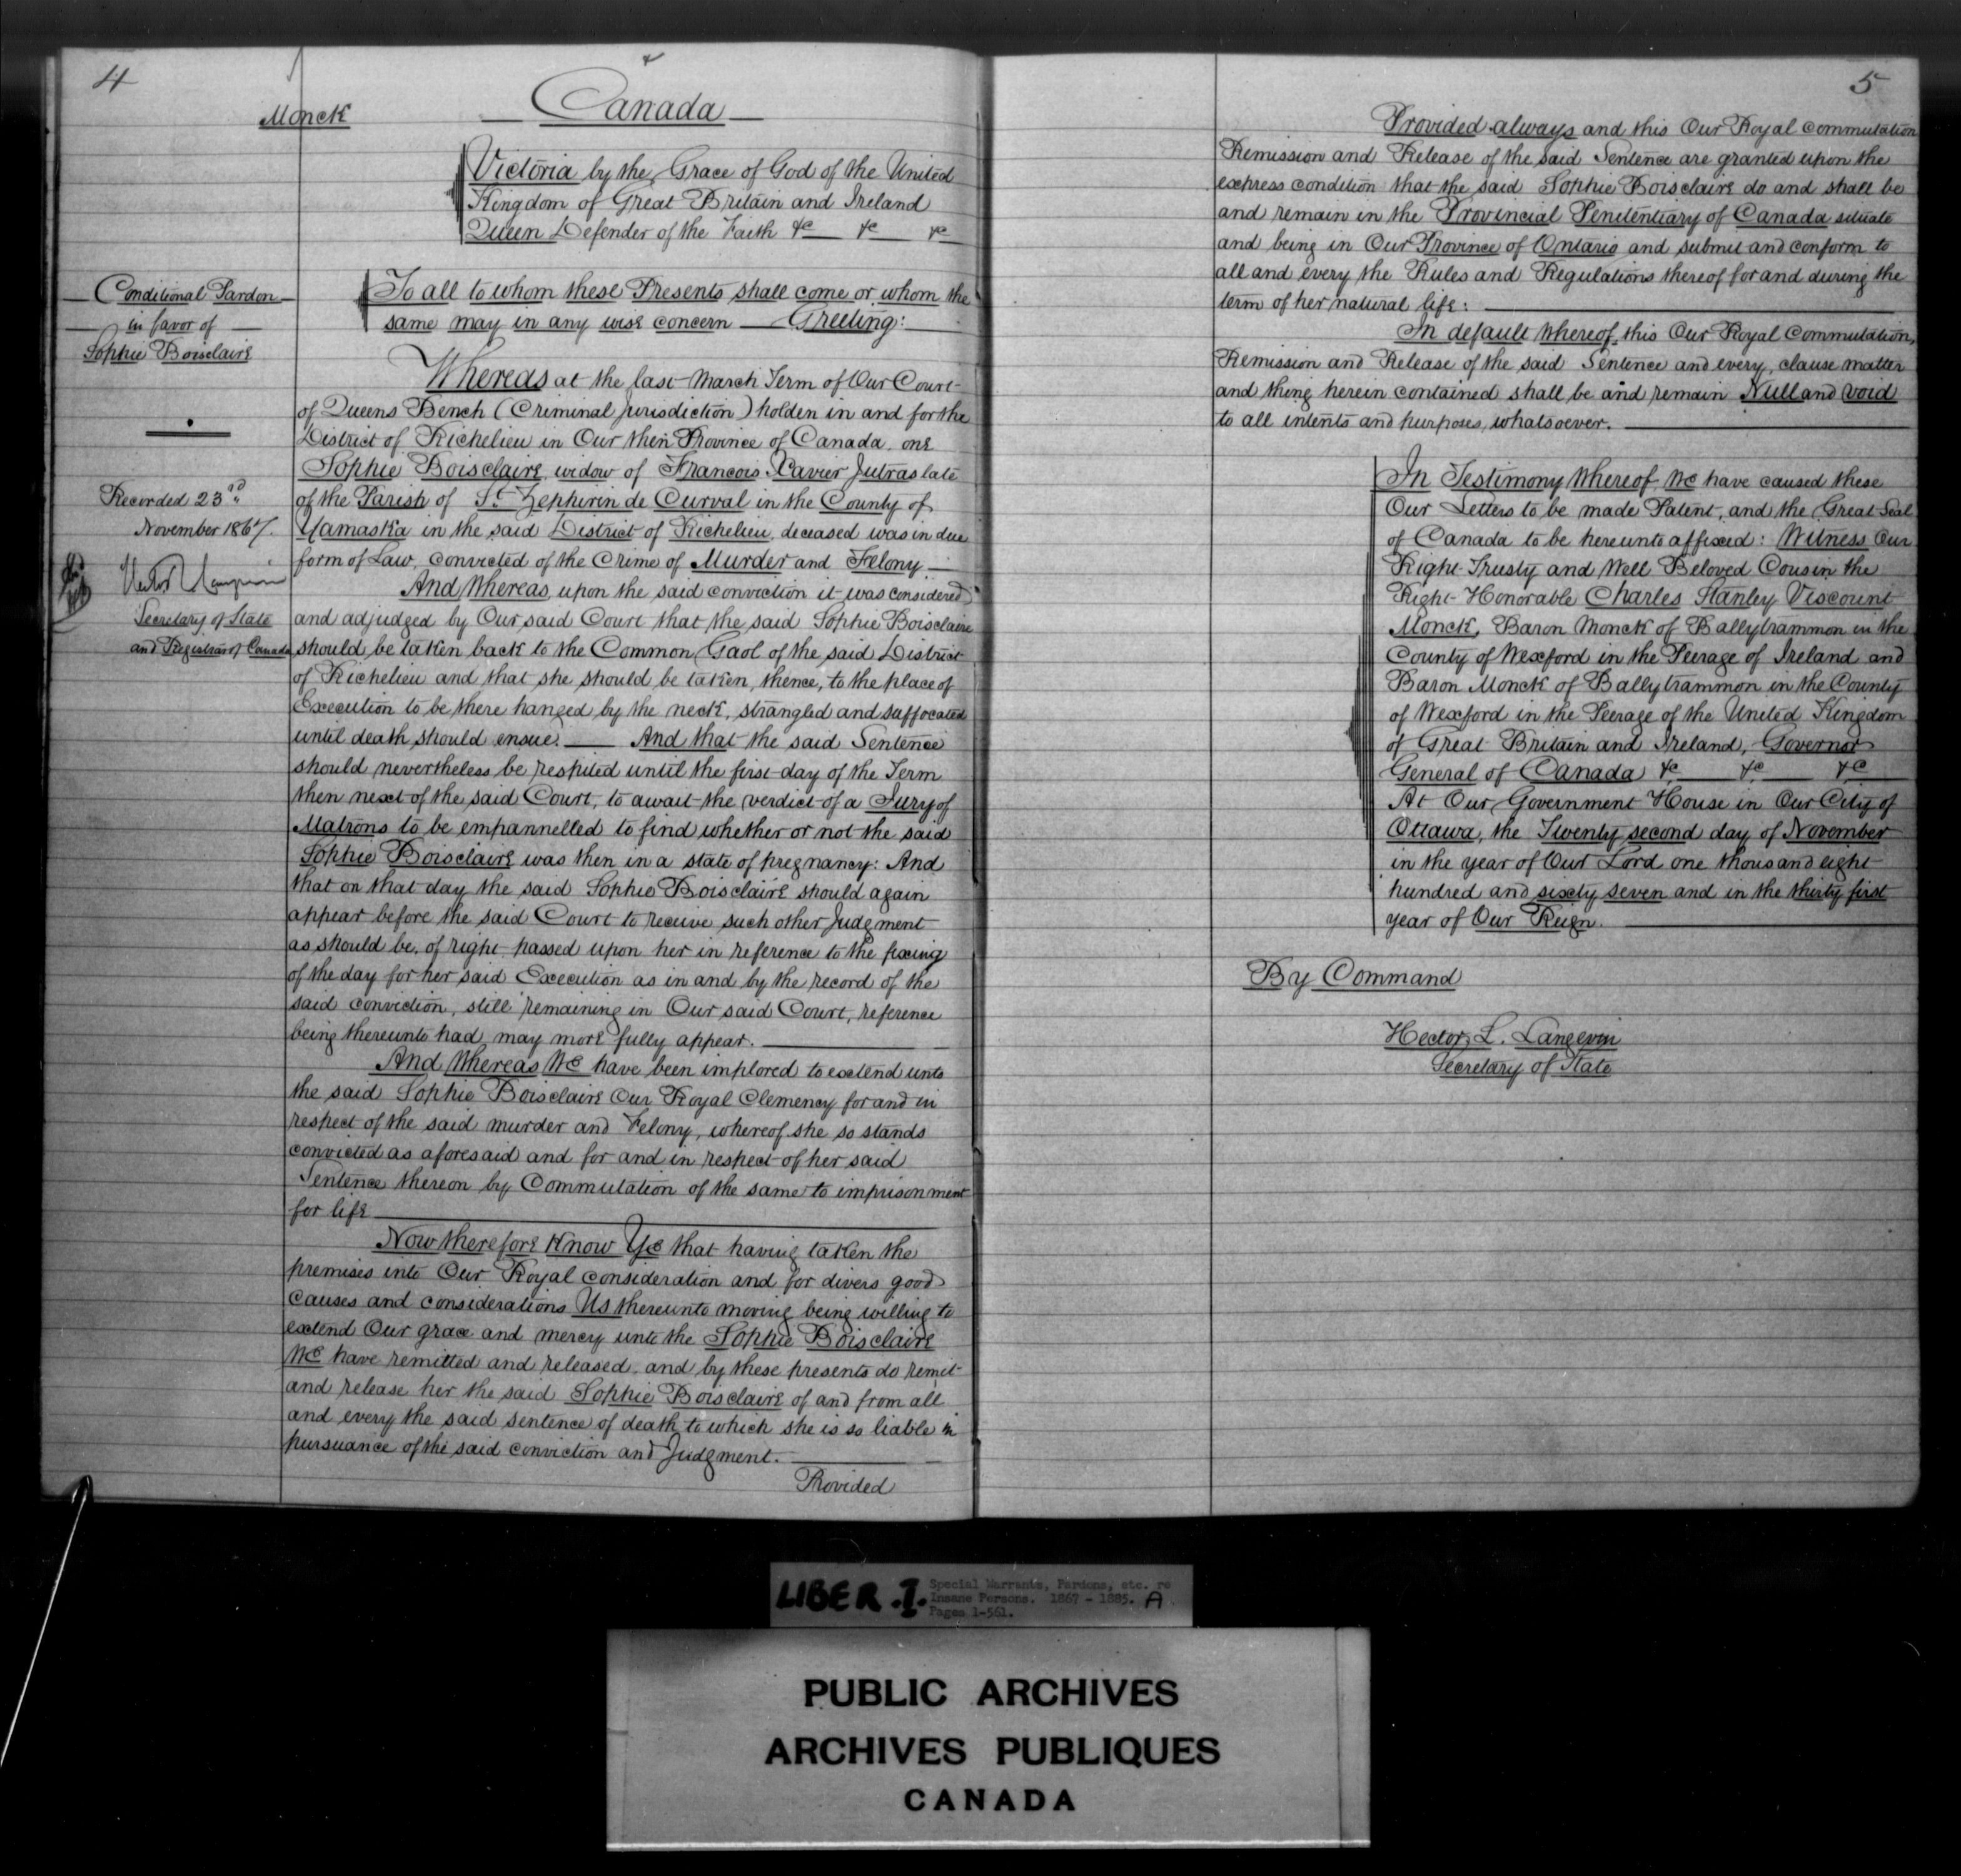 4
Monck
Canada
Victoria by the Grace of God of the United
Kingdom of Great Britain and Ireland
Queen Defender of the Faith &c &c &c
Conditional Pardon
in favor of
Sophie Boisclaire
To all to whom these Presents shall come or whom the
same may in any wise concern Greeting:
Recorded 23rd
November 1867.
Secretary of State
and Registrar of Canada
Whereas at the last March Term of Our Court
of Queens Bench (Criminal Jurisdiction) holden in and for the
District of Richelieu in Our then Province of Canada, one
Sophie Boisclaire, widow of Francois Xavier Jutras late
of the Parish of St Zephirin de Curval in the County of
Yamaska in the said District of Richelieu, deceased was in due
form of Law, convicted of the Crime of Murder and Felony
And Whereas, upon the said conviction it was considered
and adjudged by Our said Court that the said Sophie Boisclaire
should be taken back to the Common Gaol of the said District
of Richelieu and that she should be taken, thence, to the place of
Execution to be there hanged by the neck, strangled and suffocated
until death should ensue. And that the said Sentence
should nevertheless be respited until the first day of the Term
then next of the said Court, to await the verdict of a Jury of
Matrons to be empannelled to find whether or not the said
Sophie Boisclaire was then in a state of pregnancy: And
that on that day the said Sophie Boisclaire should again
appear before the said Court to receive such other Judgment
as should be, of right passed upon her in reference to the fixing
of the day for her said Execution as in and by the record of the
said conviction, still remaining in Our said Court, reference
being thereunto had, may more fully appear.
And Whereas We have been implored to extend unto
the said Sophie Boisclaire Our Royal Clemency for and in
respect of the said murder and Felony, whereof she so stands
convicted as aforesaid and for and in respect of her said
Sentence thereon by Commutation of the same to imprisonment
for life
Now therefore Know Ye that having taken the
premises into Our Royal consideration and for divers good
causes and considerations Us thereunto moving being willing to
extend Our grace and mercy unto the Sophie Boisclaire
We have remitted and released, and by these presents do remit
and release her the said Sophie Boisclaire of and from all
and every the said sentence of death to which she is so liable in
pursuance of the said conviction and Judgment.
Provided
5
Provided always and this Our Royal commutation
Remission and Release of the said Sentence are granted upon the
express condition that the said Sophie Boisclaire do and shall be
and remain in the Provincial Penitentiary of Canada situate
and being in Our Province of Ontario and submit and conform to
all and every the Rules and Regulations thereof for and during the
term of her natural life:
In default whereof, this Our Royal Commutation,
Remission and Release of the said Sentence and every, clause matter
and thing herein contained shall be and remain Null and void
to all intents and purposes, whatsoever.
In Testimony Whereof, We have caused these
Our Letters to be made Patent, and the Great Seal
of Canada to be hereunto affixed: Witness Our
Right Trusty and Well Beloved Cousin the
Right Honorable Charles Stanley Viscount
Monck, Baron Monck of Ballytrammon in the
County of Wexford in the Peerage of Ireland and
Baron Monck of Ballytrammon in the County
of Wexford in the Peerage of the United Kingdom
of Great Britain and Ireland, Governor
General of Canada &c &c &c
At Our Government House in Our City of
Ottawa, the Twenty second day of November
in the year of Our Lord one thousand eight
hundred and sixty seven and in the thirty first
year of Our Reign.
By Command
Hector L. Langevin
Secretary of State
LIBER .I. Special Warrants, Pardons, etc. re
Insane Persons. 1867 - 1885. A
Pages 1-561.
PUBLIC ARCHIVES
ARCHIVES PUBLIQUES
CANADA